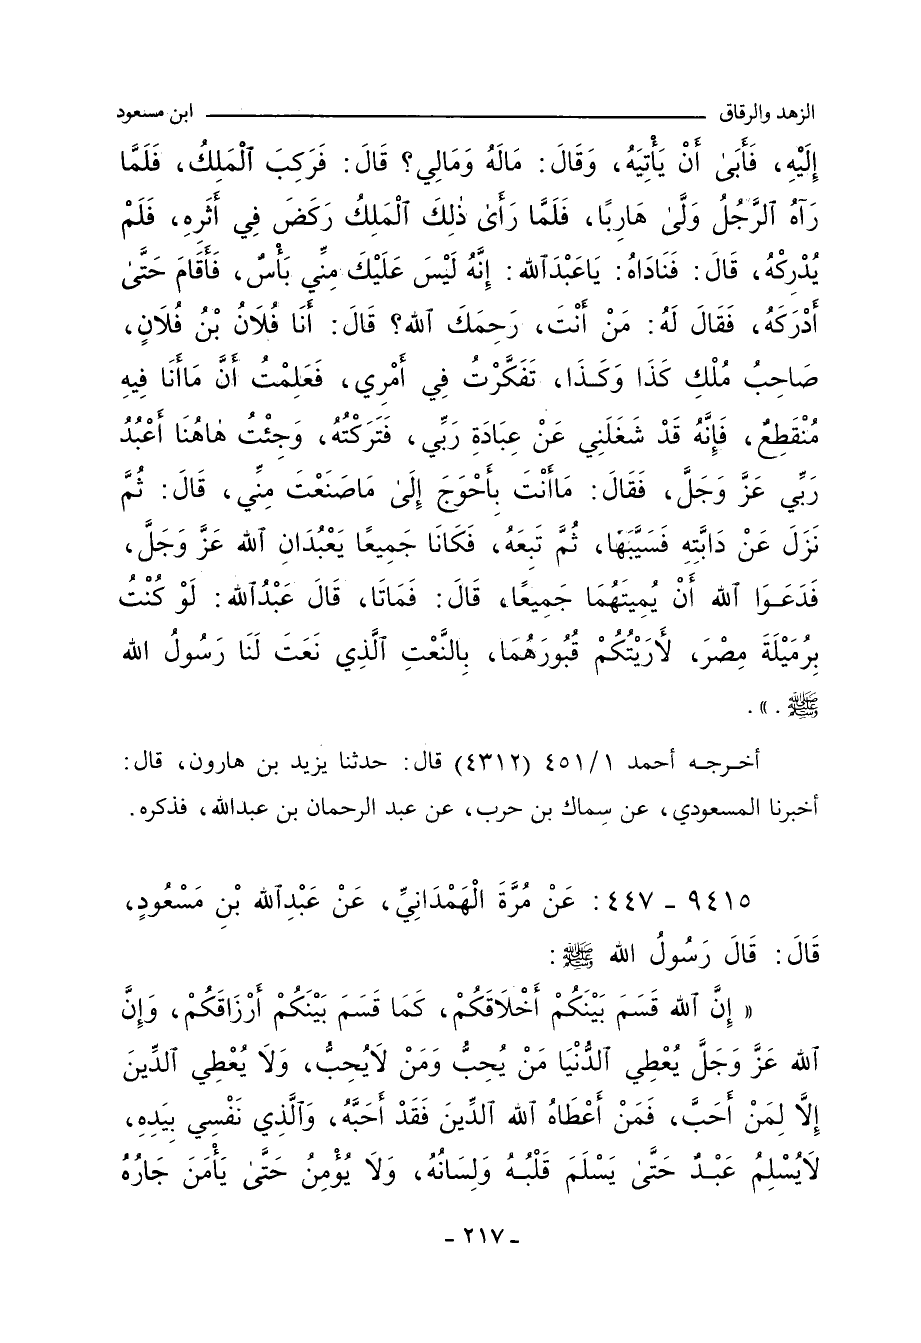 الزهد والرقاق ابن مسعود
إِلَيْهِ، فَأَبَىٰ أَنْ يَأْتِيَهُ، وَقَالَ: مَالَهُ وَمَالِي؟ قَالَ: فَرَكِبَ ٱلْمَلِكُ، فَلَمَّا
رَآهُ ٱلرَّجُلُ وَلَّىٰ هَارِبًا، فَلَمَّا رَأَىٰ ذٰلِكَ ٱلْمَلِكُ رَكَضَ فِي أَثَرِهِ، فَلَمْ
يُدْرِكْهُ، قَالَ: فَنَادَاهُ: يَاعَبْدَٱللهِ: إِنَّهُ لَيْسَ عَلَيْكَ مِنِّي بَأْسٌ، فَأَقَامَ حَتَّىٰ
أَدْرَكَهُ، فَقَالَ لَهُ: مَنْ أَنْتَ، رَحِمَكَ ٱللهُ؟ قَالَ: أَنَا فُلَانُ بْنُ فُلَانٍ،
صَاحِبُ مُلْكِ كَذَا وَكَذَا، تَفَكَّرْتُ فِي أَمْرِي، فَعَلِمْتُ أَنَّ مَاأَنَا فِيهِ
مُنْقَطِعٌ، فَإِنَّهُ قَدْ شَغَلَنِي عَنْ عِبَادَةِ رَبِّي، فَتَرَكْتُهُ، وَجِئْتُ هَاهُنَا أَعْبُدُ
رَبِّي عَزَّ وَجَلَّ، فَقَالَ: مَاأَنْتَ بِأَحْوَجَ إِلَىٰ مَاصَنَعْتَ مِنِّي، قَالَ: ثُمَّ
نَزَلَ عَنْ دَابَّتِهِ فَسَيَّبَهَا، ثُمَّ تَبِعَهُ، فَكَانَا جَمِيعًا يَعْبُدَانِ ٱللهَ عَزَّ وَجَلَّ،
فَدَعَوَا ٱللهَ أَنْ يُمِيتَهُمَا جَمِيعًا، قَالَ: فَمَاتَا، قَالَ عَبْدُٱللهِ: لَوْ كُنْتُ
بِرُمَيْلَةِ مِصْرَ، لَأَرَيْتُكُمْ قُبُورَهُمَا، بِالنَّعْتِ ٱلَّذِي نَعَتَ لَنَا رَسُولُ ٱللهِ
ﷺ . ».
أخرجه أحمد ٤٥١/١ (٤٣١٢) قال: حدثنا يزيد بن هارون، قال:
أخبرنا المسعودي، عن سِماك بن حرب، عن عبد الرحمان بن عبدالله، فذكره.
٩٤١٥ - ٤٤٧: عَنْ مُرَّةَ الْهَمْدَانِيِّ، عَنْ عَبْدِٱللهِ بْنِ مَسْعُودٍ،
قَالَ: قَالَ رَسُولُ ٱللهِ ﷺ :
« إِنَّ ٱللهَ قَسَمَ بَيْنَكُمْ أَخْلَاقَكُمْ، كَمَا قَسَمَ بَيْنَكُمْ أَرْزَاقَكُمْ، وَإِنَّ
ٱللهَ عَزَّ وَجَلَّ يُعْطِي ٱلدُّنْيَا مَنْ يُحِبُّ وَمَنْ لَايُحِبُّ، وَلَا يُعْطِي ٱلدِّينَ
إِلَّا لِمَنْ أَحَبَّ، فَمَنْ أَعْطَاهُ ٱللهُ ٱلدِّينَ فَقَدْ أَحَبَّهُ، وَٱلَّذِي نَفْسِي بِيَدِهِ،
لَايُسْلِمُ عَبْدٌ حَتَّىٰ يَسْلَمَ قَلْبُهُ وَلِسَانُهُ، وَلَا يُؤْمِنُ حَتَّىٰ يَأْمَنَ جَارُهُ
- ٢١٧ -